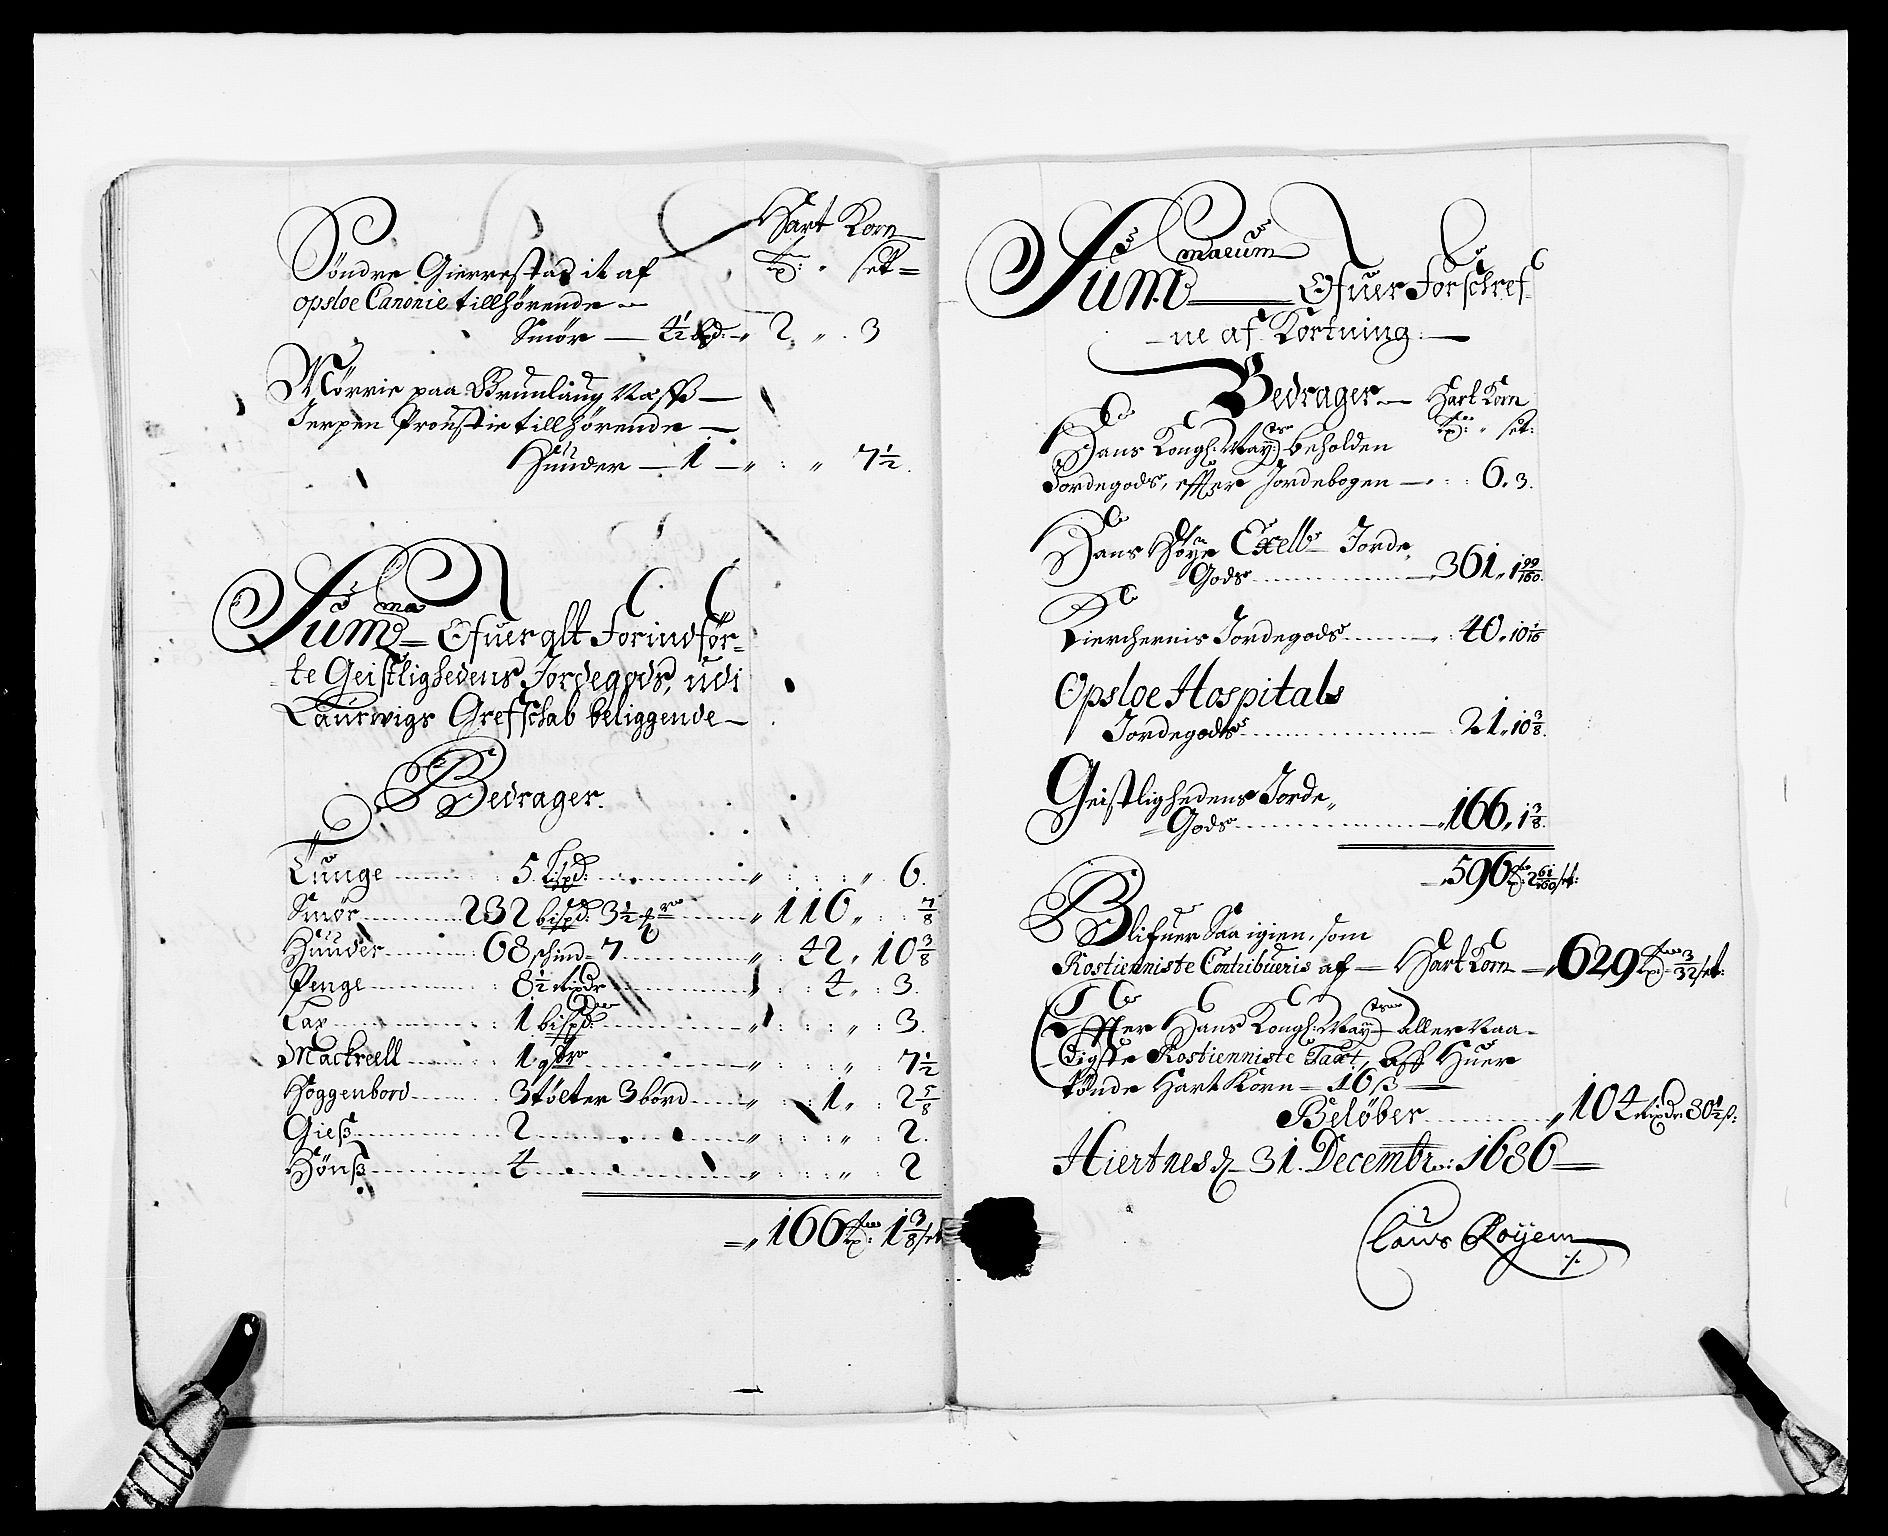 Hart Korn
tr: " set=
Söndre Gierrestad it af
opsloe Canonie tillhörende
Smör — 4½ bpd: — " 2 " 3
Mörrie paa Brunlaug Næss —
Jerpen Proustie tillhörende —
Huuder — 1 — " : " 7½
Summa Ofuer alt Forindför-
te Geistlighedens Jordegods, udi
Laurwigs Grefschab beliggende —
Bedrager.
Tunge 5 Lispd: " : : " 6.
Smör 232 bispd: 3½ " 116 " : ⅞
Huuder 68 schind 7 " : 42 " 10⅜
Penge 8½ rixdr : 4 " : 3.
Lax 1 bispd: " : : " : 3.
Mackreell 1 qtr " : : " : 7½
Hoggenbord 3 tölter 3 bord " : 1 " : 2⅝
Gieß 2 " : : " : 2.
Hönß 4 " : : " : 2
" 166 tr: 1⅜ set
Summarum Ofuer Forschref-
ne af Kortning: —
Bedrager — Hart Korn
tr: " set:
Hans Kongl: May:ts beholden
Jordegods, effter Jordebogen — : : 6. 3.
Hans Höye Excell Jorde
Gods 361 " 1 99/160.
Kierchernis Jordegods : 40 " 10 1/16
Opsloe Hospitals
Jordegods : 21 " 10⅜.
Geistlighedens Jorde "
Gods " 166 " 1⅜.
596 tr: 2 61/160 set:
Blifuer Saa igien, som
Rostienniste Contribueris af — Hart Korn — " 629 tr: 3/32 set:
Effter Hans Kongl: May:ts aller Naa-
digste Rostienniste Taxt, Aff Huer
tönde Hart Korn — 16 ß —
Belöber " 104 rixdr 80½ ß:
Hiertnes d. 31. Decembr: 1686 —
Claus Röyem